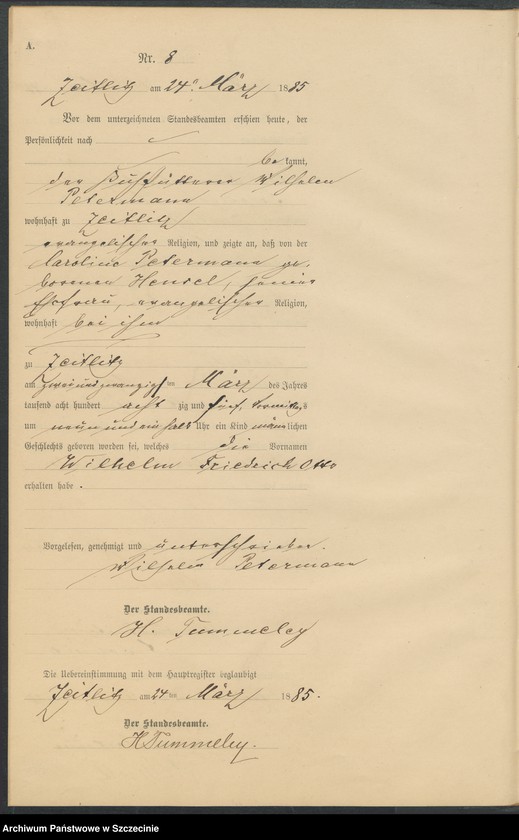 A.
Nr. 8
Zeitlitz am 24ⁿ März 1885
Vor dem unterzeichneten Standesbeamten erschien heute, der
Persönlichkeit nach
bekannt,
der Kuhfütterer Wilhelm
Petermann
wohnhaft zu Zeitlitz
evangelischer Religion, und zeigte an, daß von der
Caroline Petermann ge-
borenen Hensel, seiner
Ehefrau, evangelischer Religion,
wohnhaft bei ihm
zu Zeitlitz
am zweiundzwanzigsten März des Jahres
tausend acht hundert acht zig und fünf, Vormittags
um neun und ein halb Uhr ein Kind männlichen
Geschlechts geboren worden sei, welches die Vornamen
Wilhelm Friedrich Otto
erhalten habe.
Vorgelesen, genehmigt und unterschrieben.
Wilhelm Petermann
Der Standesbeamte.
H. Tummeley
Die Uebereinstimmung mit dem Hauptregister beglaubigt
Zeitlitz am 24ten März 1885.
Der Standesbeamte.
H Tummeley.
Archiwum Państwowe w Szczecinie